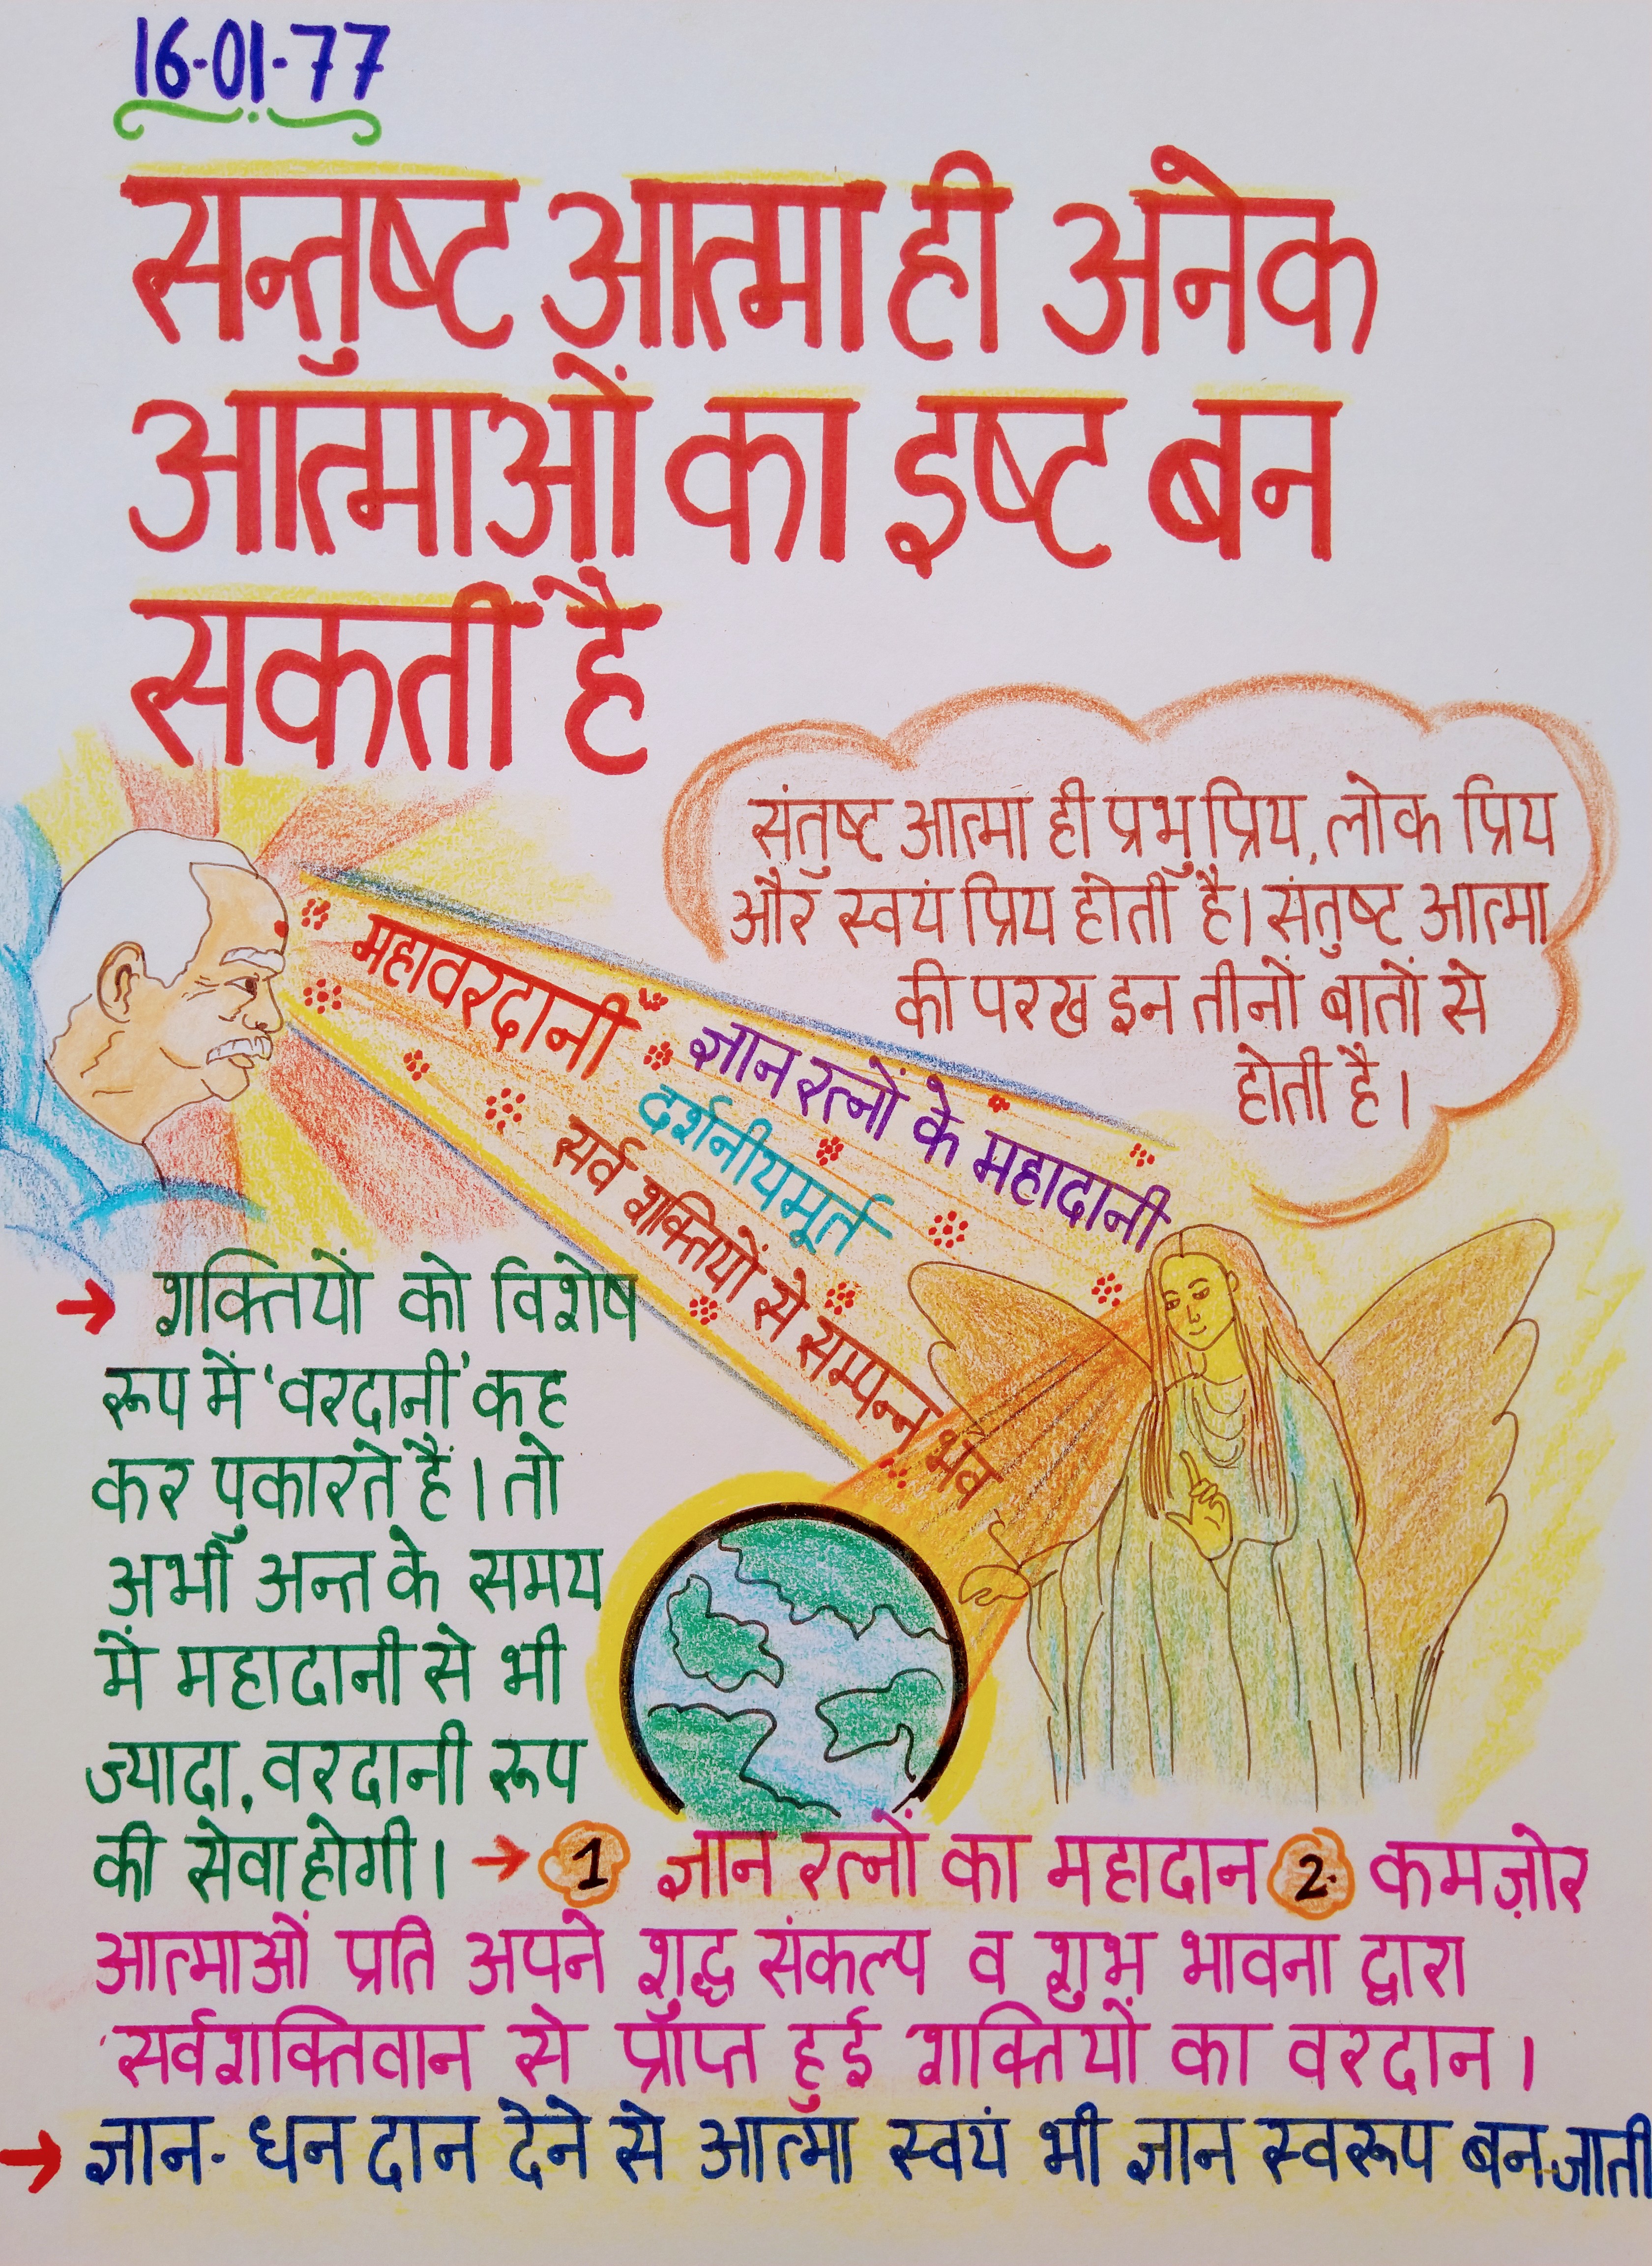 16-01-77
सन्तुष्ट आत्मा ही अनेक
आत्माओं का इष्ट बन
सकती है
संतुष्ट आत्मा ही प्रभु प्रिय, लोक प्रिय
और स्वयं प्रिय होती है। संतुष्ट आत्मा
की परख इन तीनों बातों से
होती है।
महावरदानी
ज्ञान रत्नों के महादानी
दर्शनीयमूर्त
सर्व शक्तियों से सम्पन्न भव
→ शक्तियों को विशेष
रूप में 'वरदानी' कह
कर पुकारते हैं। तो
अभी अन्त के समय
में महादानी से भी
ज्यादा, वरदानी रूप
की सेवा होगी। → 1 ज्ञान रत्नों का महादान 2. कमज़ोर
आत्माओं प्रति अपने शुद्ध संकल्प व शुभ भावना द्वारा
सर्वशक्तिवान से प्राप्त हुई शक्तियों का वरदान।
→ ज्ञान-धन दान देने से आत्मा स्वयं भी ज्ञान स्वरूप बन जाती